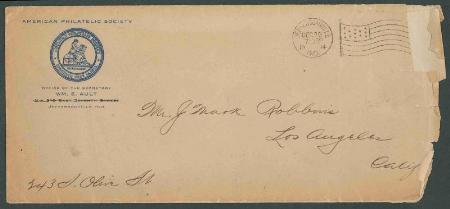 AMERICAN PHILATELIC SOCIETY
OFFICE OF THE SECRETARY
WM. E. AULT
JEFFERSONVILLE, IND.
DEC 29
Mr. J Mark Robbins
Los Angeles
Calif
243 S. Olive St